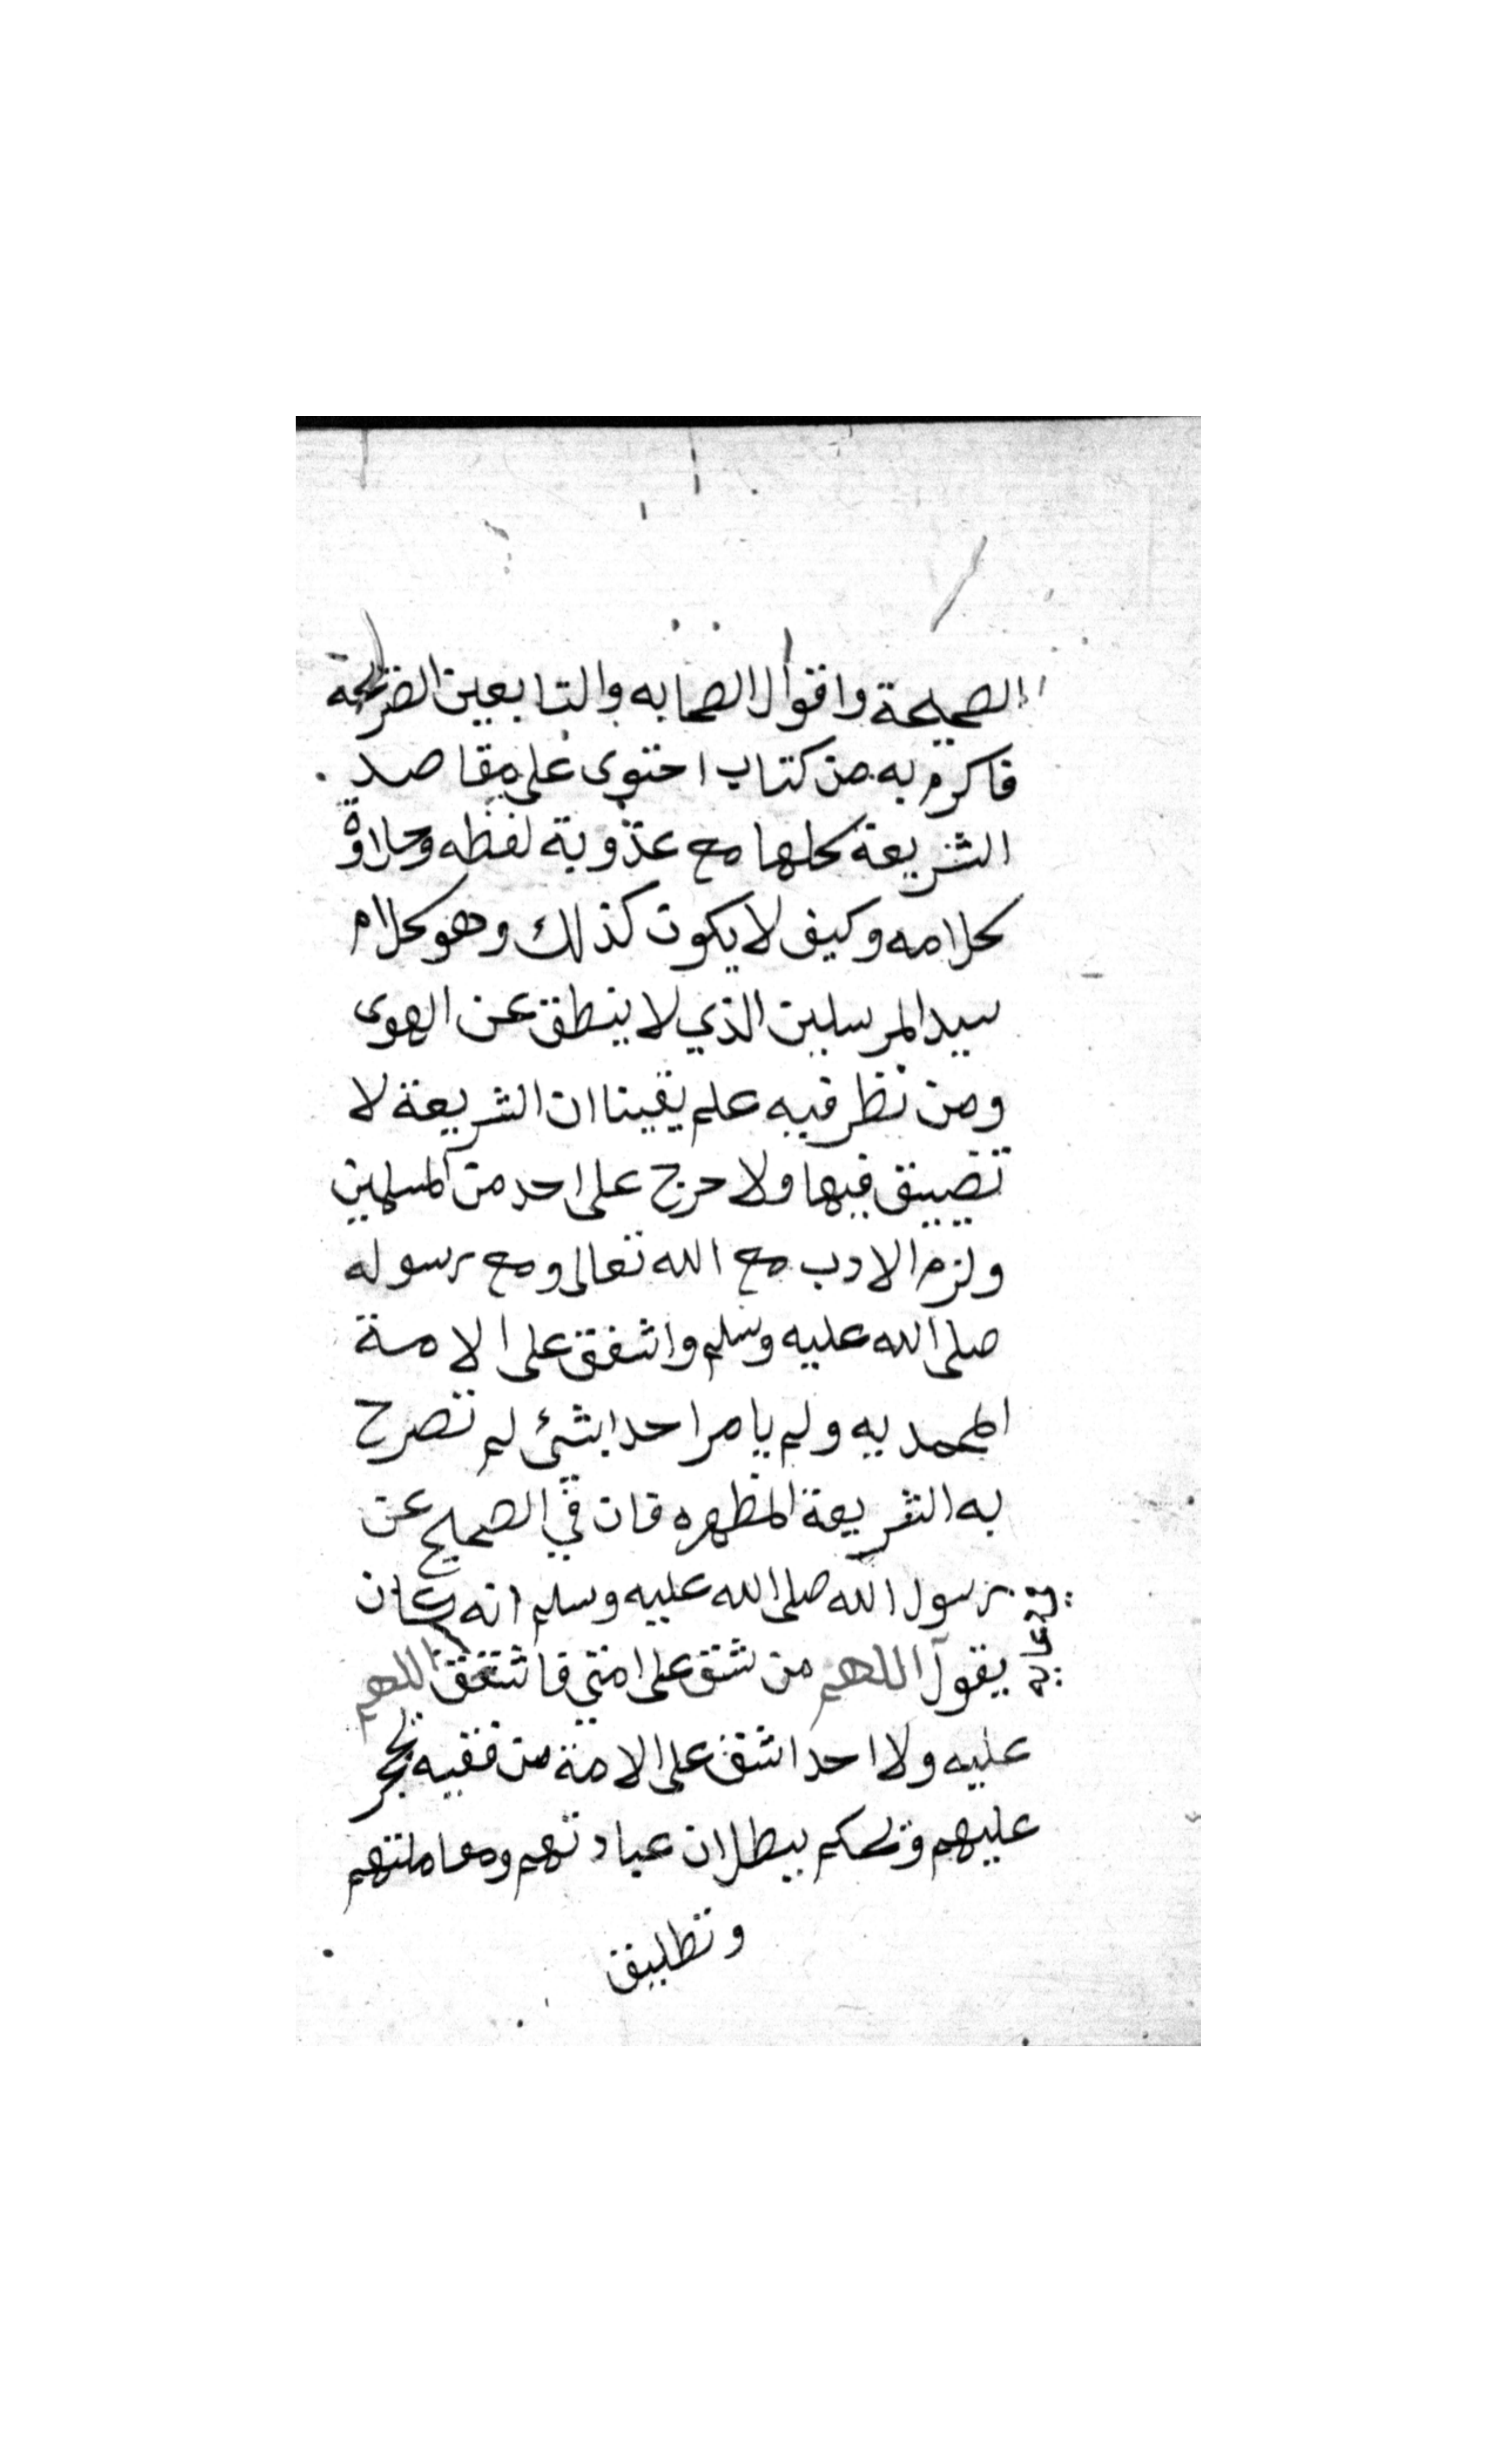 الصحيحة واقوال الصحابه والتابعين الصريحة
فاكرم به من كتاب احتوى على مقاصد
الشريعة كلها مع عذوبة لفظه وحلاوة
كلامه وكيف لا يكون كذلك وهو كلام
سيد المرسلين الذي لا ينطق عن الهوى
ومن نظر فيه علم يقينا ان الشريعة لا
تضييق فيها ولا حرج على احد من المسلمين
ولزم الادب مع الله تعالى ومع رسوله
صلى الله عليه وسلم واشفق على الامة
المحمديه ولم يامر احدا بشئ لم تصرح
به الشريعة المطهره فان في الصحيح عن
رسول الله صلى الله عليه وسلم انه كان
يقول اللهم من شق على امتي فاشقق اللهم
عليه ولا احد اشق على الامة من فقيه يحجر
عليهم ويحكم ببطلان عبادتهم ومعاملتهم
وتطليق